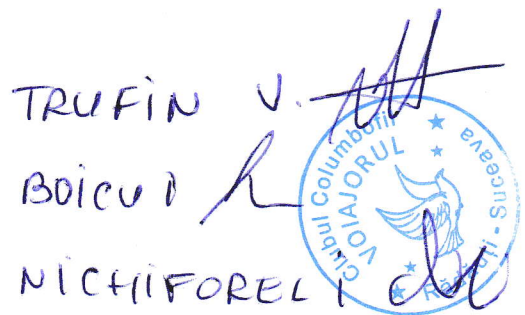 TRUFIN V.
BOICU D
NICHIFOREL I
Clubul Columbofil
VOIAJORUL
Rădăuți - Suceava